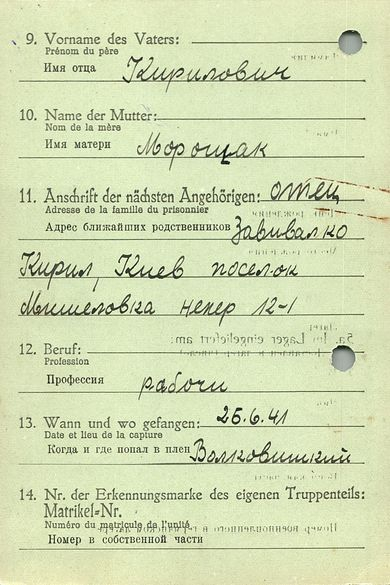 9. Vorname des Vaters:
Prénom du père
Имя отца Кирилович
10. Name der Mutter:
Nom de la mère
Имя матери Морощак
11. Anschrift der nächsten Angehörigen: отец
Adresse de la famille du prisonnier
Адрес ближайших родственников Завивалко
Кирил, Киев поселок
Мишеловка 12-1
12. Beruf:
Profession
Профессия рабочи
13. Wann und wo gefangen: 25.6.41
Date et lieu de la capture
Когда и где попал в плен Волковишкий
14. Nr. der Erkennungsmarke des eigenen Truppenteils:
Matrikel=Nr.
Numéro du matricule de l'unité
Номер в собственной части